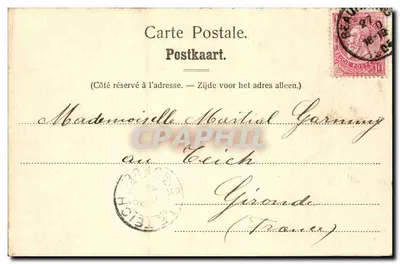 Carte Postale.
Postkaart.
(Côté réservé à l'adresse. — Zijde voor het adres alleen.)
Mademoiselle Martial Garnung
au Teich
Gironde
(France)
LE TEICH
CPAPHIL.com